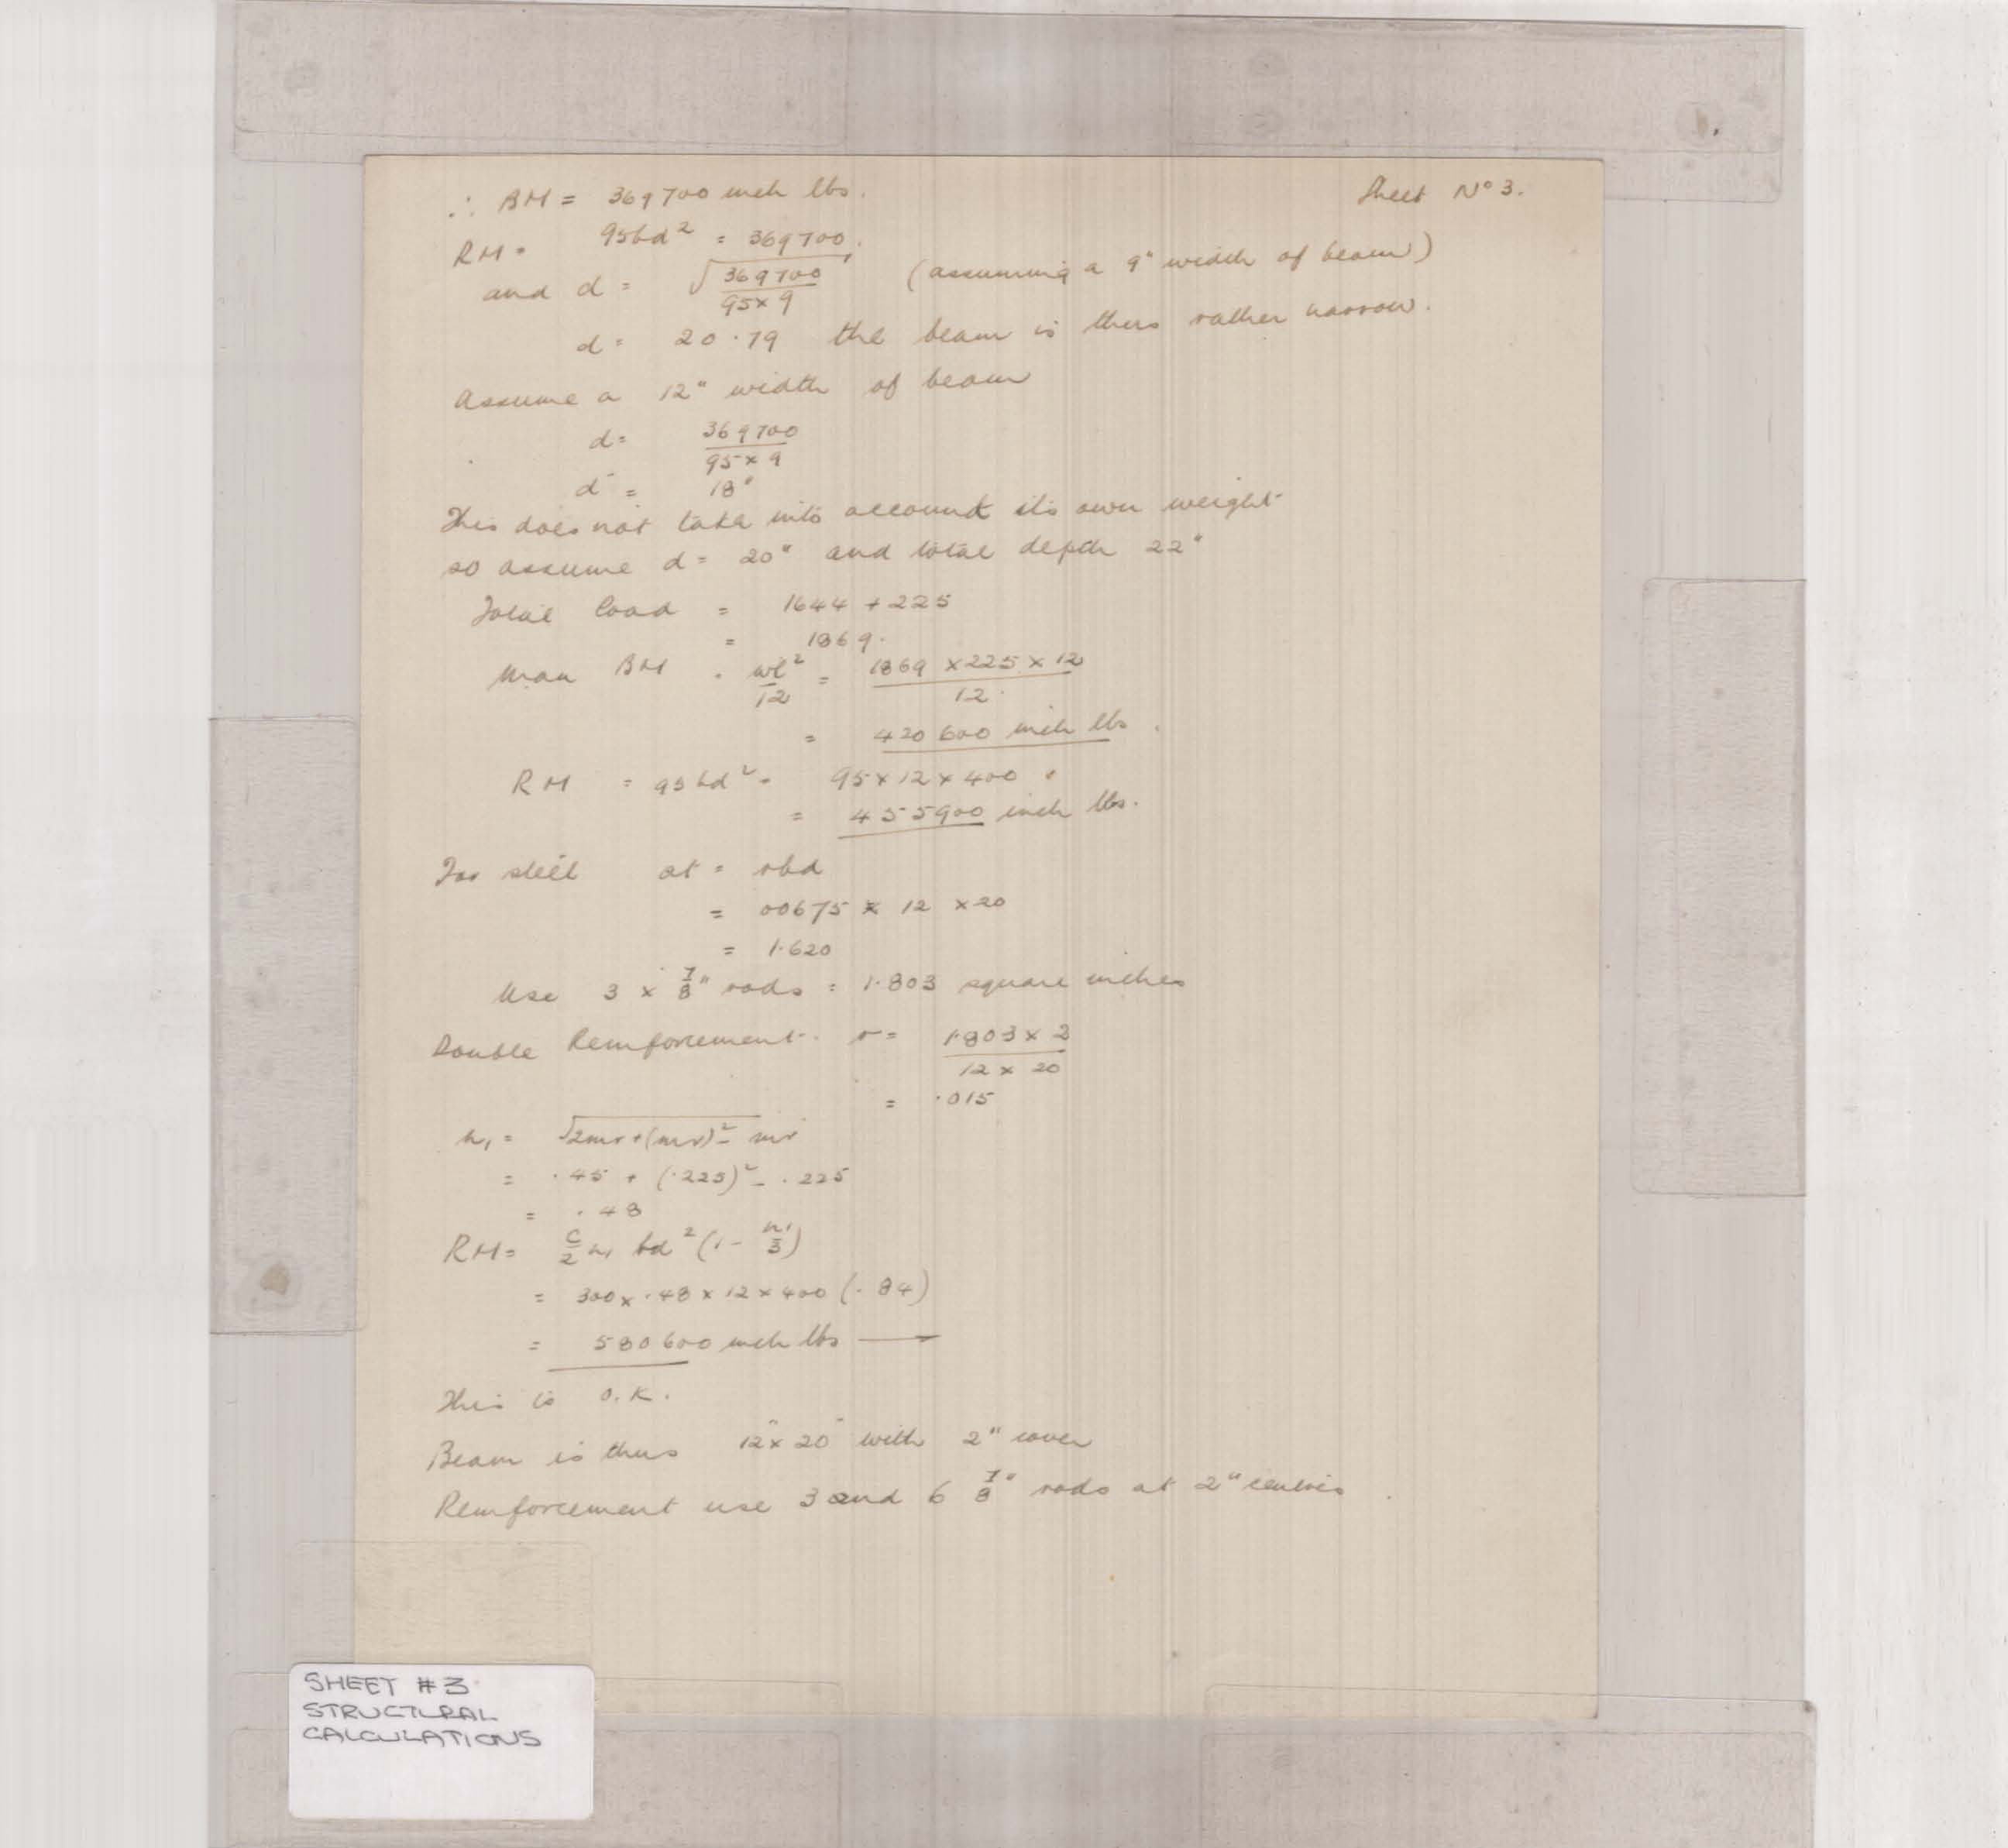 ∴ BM = 369700 inch lbs.
Sheet No 3.
RM = 95bd² = 369700.
and d = √369700/95×9 (assuming a 9" width of beam)
d = 20.79 the beam is thus rather narrow.
Assume a 12" width of beam
d = 369700/95×9
d = 18"
This does not take into account its own weight
so assume d = 20" and total depth 22"
Total load = 1644 + 225
= 1869.
Max BM = wl²/12 = 1869 × 225 × 12/12
= 420 600 inch lbs.
RM = 95bd² = 95 × 12 × 400
= 455900 inch lbs.
For steel at = rbd
= 00675 × 12 × 20
= 1.620
Use 3 × 7/8" rods = 1.803 square inches
Double Reinforcement. r = 1.803 × 2/12 × 20
= .015
n₁ = √2mr+(mr)² - mr
= .45 + (.225)² - .225
= .48
RM = c/2 n₁ bd² (1 - n₁/3)
= 300 × .48 × 12 × 400 (.84)
= 580600 inch lbs —
This is O.K.
Beam is thus 12" × 20" with 2" cover
Reinforcement use 3 and 6 7/8" rods at 2" centres.
SHEET #3
STRUCTURAL
CALCULATIONS